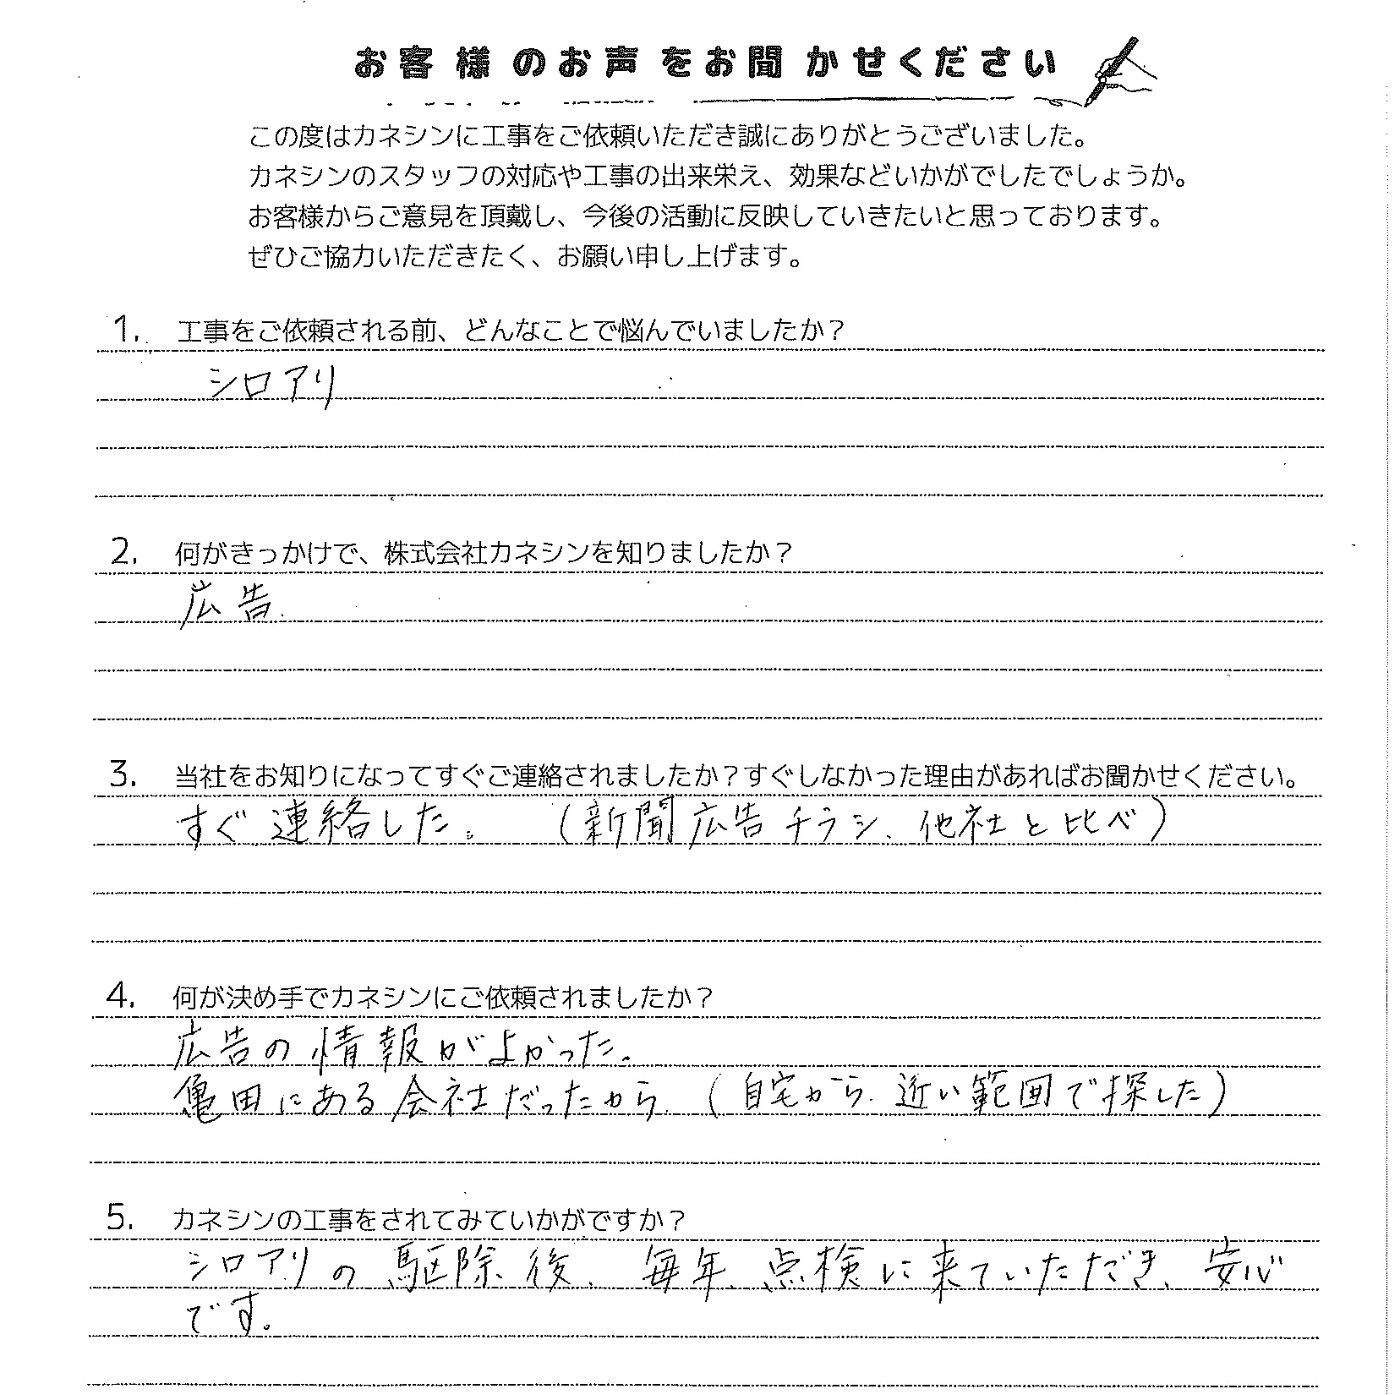 お客様のお声をお聞かせください
この度はカネシンに工事をご依頼いただき誠にありがとうございました。
カネシンのスタッフの対応や工事の出来栄え、効果などいかがでしたでしょうか。
お客様からご意見を頂戴し、今後の活動に反映していきたいと思っております。
ぜひご協力いただきたく、お願い申し上げます。
1. 工事をご依頼される前、どんなことで悩んでいましたか？
シロアリ
2. 何がきっかけで、株式会社カネシンを知りましたか？
広告.
3. 当社をお知りになってすぐご連絡されましたか？すぐしなかった理由があればお聞かせください。
すぐ連絡した。 （新聞広告チラシ、他社と比べ）
4. 何が決め手でカネシンにご依頼されましたか？
広告の情報がよかった。
亀田にある会社だったから.（自宅から.近い範囲で探した）
5. カネシンの工事をされてみていかがですか？
シロアリの駆除後、毎年、点検に来ていただき、安心
です。